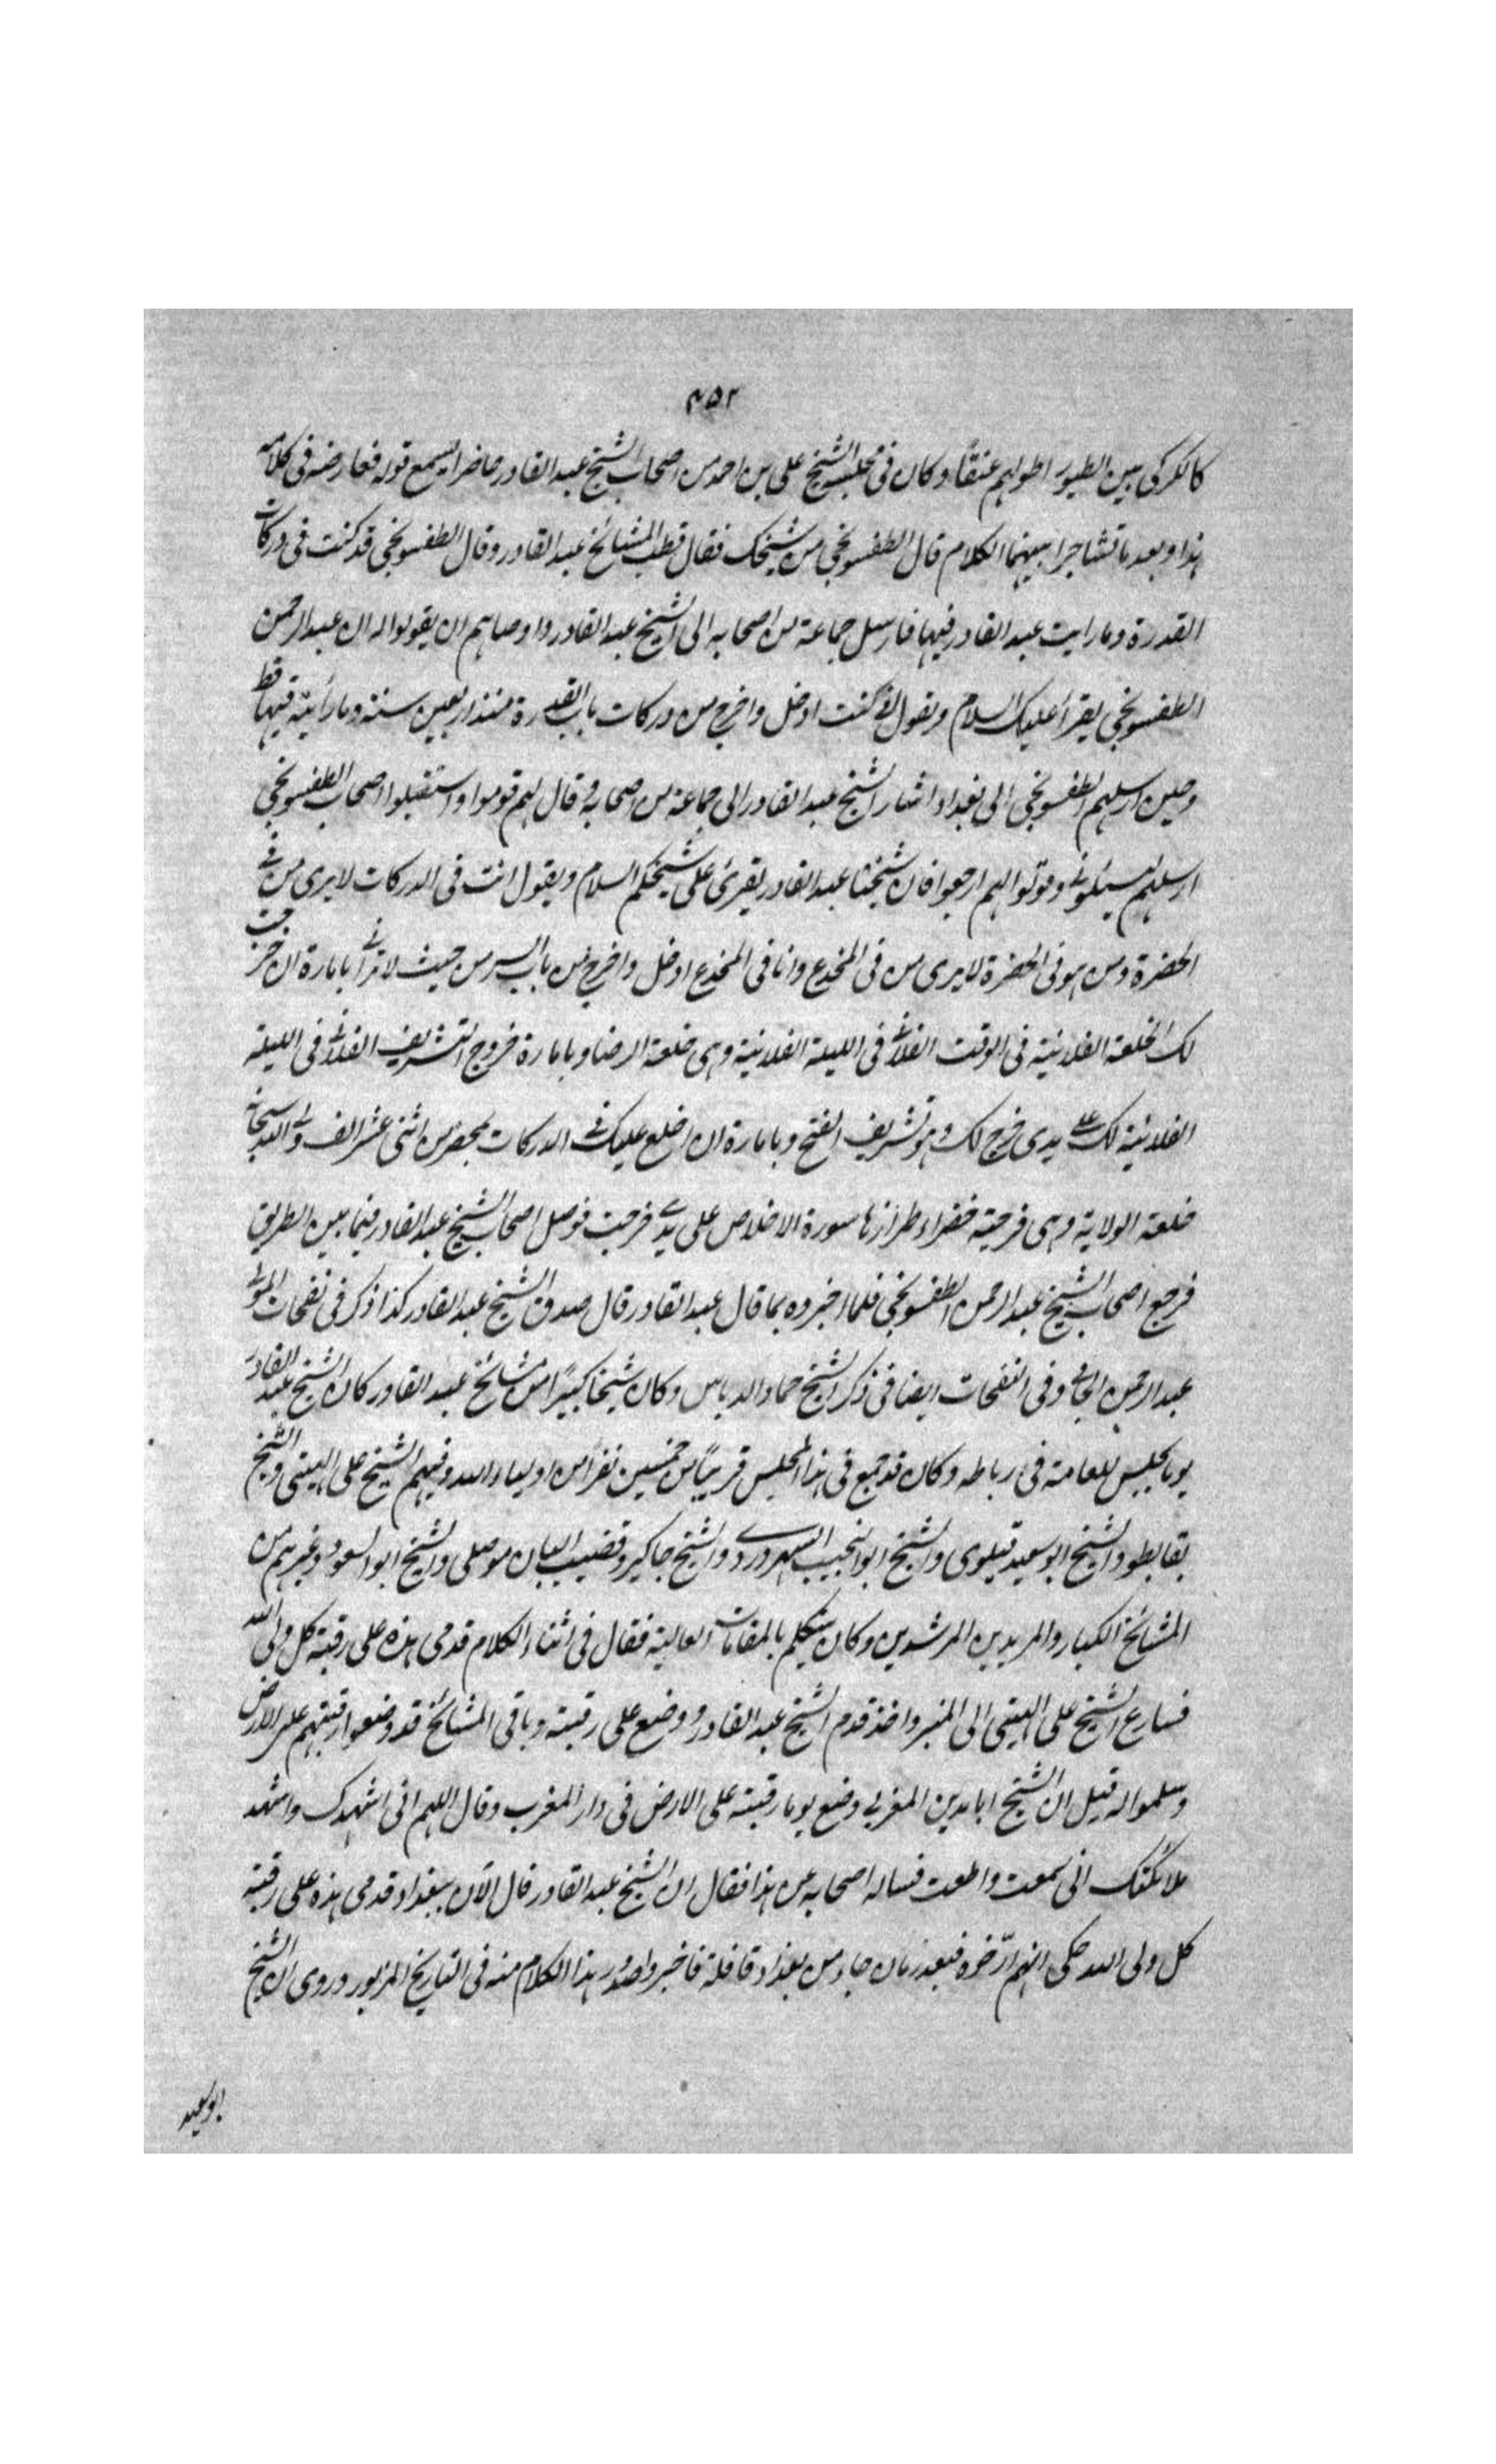 ٤٥٢
كالكركى بين الطيور اطولهم عنقًا وكان فى مجلسه الشيخ على بن احمد من اصحاب الشيخ عبد القادر حاضرا يسمع قوله فعارضه فى كلامه
هذا وبعد ما تشاجرا بينهما الكلام قال الطفسونجى من شيخك فقال قطب المشائخ عبد القادر وقال الطفسونجى قد كنت فى دركات
القدرة وما رايت عبد القادر فيها فارسل جماعة من اصحابه الى الشيخ عبد القادر واوصاهم ان يقولوا له ان عبد الرحمن
الطفسونجى يقرأ عليك السلام ويقول انى كنت ادخل واخرج من دركات باب القدرة منذ اربعين سنة وما رأيته فيها قط
وحين ارسلهم الطفسونجى الى بغداد اشار الشيخ عبد القادر الى جماعة من اصحابه وقال لهم قوموا واستقبلوا اصحاب الطفسونجى
ارسلهم وقولوا لهم ارجعوا فان شيخنا عبد القادر يقرئ على شيخكم السلام ويقول انت فى الدركات لا يرى من فى
الحضرة ومن هو فى الحضرة لا يرى من فى المخدع وانا فى المخدع ادخل واخرج من باب السر من حيث لا ترانى بامارة ان خرجت
لك الخلعة الفلانية فى الوقت الفلانى فى الليلة الفلانية وهى خلعة الرضا وبامارة خروج التشريف الفلانى فى الليلة
الفلانية لك على يدى خرج لك وهو تشريف الفتح وبامارة ان اخلع عليك فى الدركات بمحضر من اثنى عشر الف ولى الله سبحانه
خلعة الولاية وهى فرجية خضراء طرازها سورة الاخلاص على يدى خرجت فوصل اصحاب الشيخ عبد القادر فيما بين الطريق
فرجع اصحاب الشيخ عبد الرحمن الطفسونجى فلما اخبروه بما قال عبد القادر قال صدق الشيخ عبد القادر كذا ذكر فى نفحات المولى
عبد الرحمن الجامى وفى النفحات ايضا فى ذكر الشيخ حماد الدباس وكان شيخا كبيرًا من مشائخ عبد القادر كان الشيخ عبد القادر
يوما يجلس للعامة فى رباطه وكان قد جمع فى هذا المجلس قريبًا من خمسين نفرًا من اولياء الله وفيهم الشيخ على الهيتى والشيخ
بقا بطو والشيخ ابو سعيد قيلوى والشيخ ابو النجيب السهروردى والشيخ جاكير وقضيب البان موصلى والشيخ ابو السعود وغيرهم من
المشائخ الكبار والمريدين المرشدين وكان يتكلم بالمقامات العالية فقال فى اثناء الكلام قدمى هذه على رقبة كل ولى الله
فسارع الشيخ على الهيتى الى المنبر واخذ قدم الشيخ عبد القادر ووضع على رقبته وباقى المشائخ قد وضعوا رقبتهم على الارض
وسلموا له قيل ان الشيخ ابا مدين المغربى وضع يوما رقبته على الارض فى دار المغرب وقال اللهم انى اشهدك واشهد
ملائكتك انى سمعت واطعت فساله اصحابه عن هذا فقال ان الشيخ عبد القادر قال الآن ببغداد قدمى هذه على رقبة
كل ولى الله حكى انهم ارّخوه فبعد زمان جاء من بغداد قافلة فاخبروا صدور هذا الكلام منه فى التاريخ المزبور وروى ان الشيخ
ابو سعيد